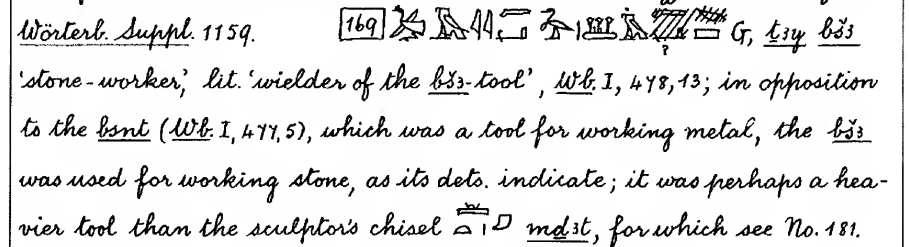 Wörterb. Suppl. 1159. 169 G, ṯꜣy bšꜣ
'stone-worker', lit. 'wielder of the bšꜣ-tool', Wb. I, 478,13; in opposition
to the bsnt (Wb. I, 477,5), which was a tool for working metal, the bšꜣ
was used for working stone, as its dets. indicate; it was perhaps a hea-
vier tool than the sculptor's chisel mḏꜣt, for which see No. 181.